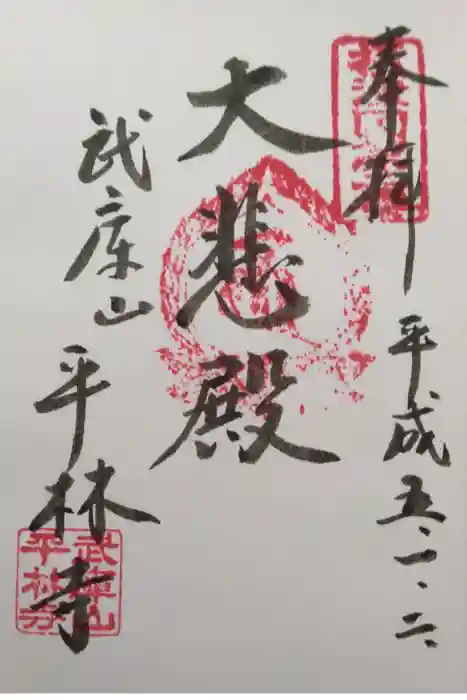 奉拝
平成五.一.二
大悲殿
武庫山
平林寺
武庫山
平林寺